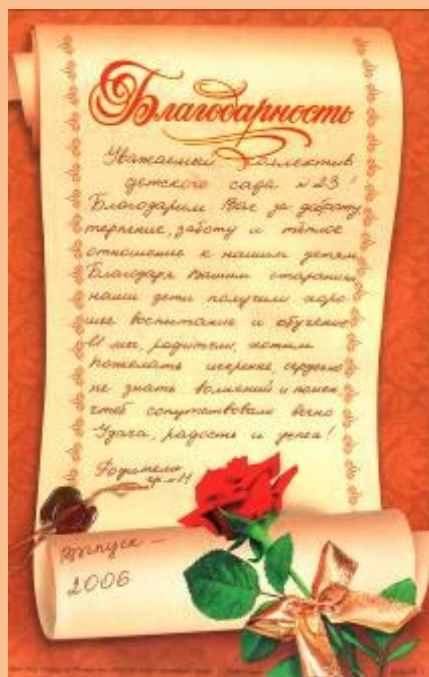 Благодарность
Уважаемый коллектив
детского сада №23!
Благодарим Вас за доброту,
терпение, заботу и тёплое
отношение к нашим детям
Благодаря Вашим стараниям
наши дети получили хоро-
шее воспитание и обучение
И мы, родители, хотим
пожелать искренне, сердечно
не знать волнений и помех
чтоб сопутствовали вечно
Удача, радость и успех!
Родители
гр. №11
Выпуск —
2006